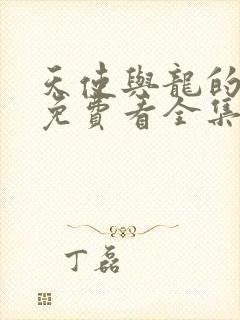 天使與龍的
免費看全集
丁磊